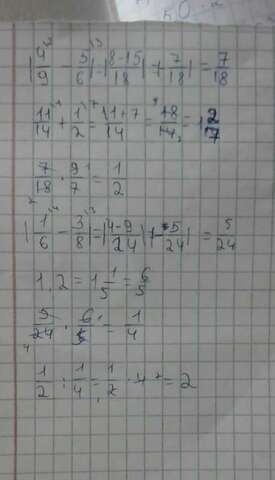 |4/9 - 5/6| = |8-15/18| = |+7/18| = 7/18
11/14 + 1/2 = 11+7/14 = 18/14 = 1 2/7
7/18 · 9/7 = 1/2
|1/6 - 3/8| = |4-9/24| = |-5/24| = 5/24
1,2 = 1 1/5 = 6/5
5/24 · 6/5 = 1/4
1/2 : 1/4 = 1/2 · 4 = 2